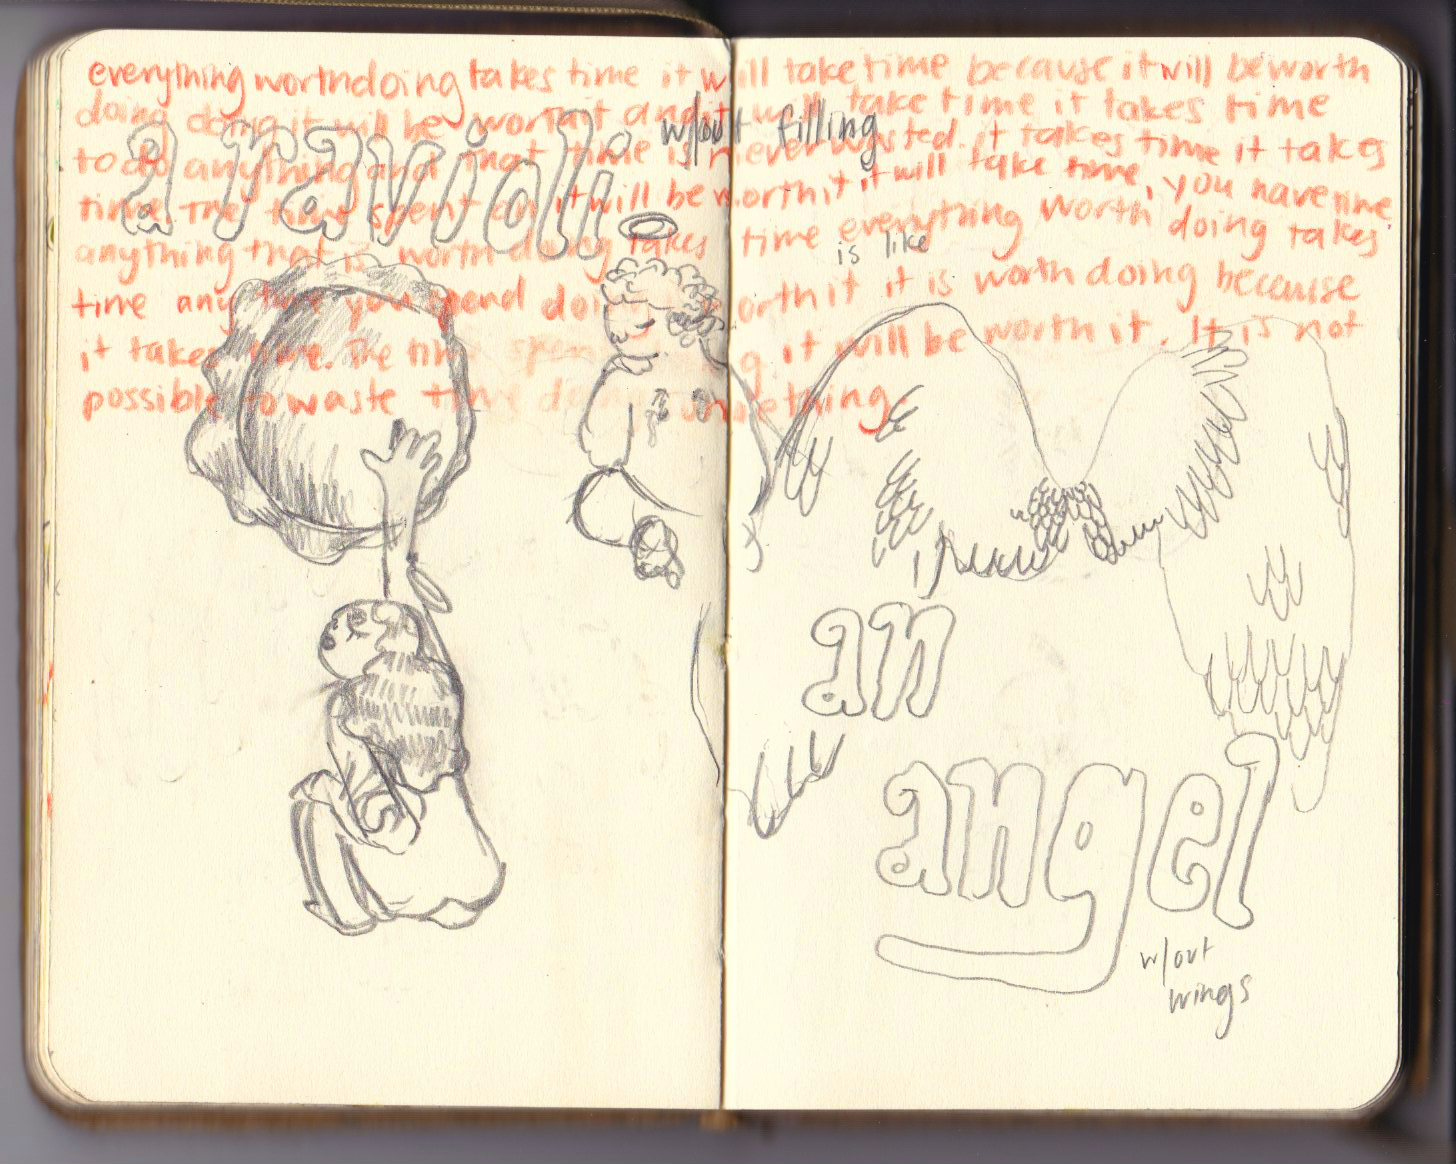 everything worth doing takes time it will take time because it will be worth
doing doing it will be worth it and it will take time it takes time
to do anything and that time is never wasted. it takes time it takes
time. The time spent on it will be worth it it will take time, you have time,
anything that is worth doing takes time everything worth doing takes
time any time you spend doing worth it it is worth doing because
it takes time. The time spent doing it will be worth it. It is not
possible to waste time doing something.
a ravioli
w/out filling
is like
an
angel
w/out
wings